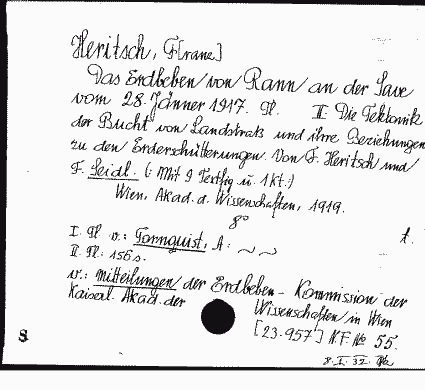 Heritsch, F[ranz]
Das Erdbeben von Rann an der Save
vom 28. Jänner 1917. Tl. II: Die Tektonik
der Bucht von Landstraß und ihre Beziehungen
zu den Erderschütterungen. Von F. Heritsch und
F. Seidl. (: Mit 9 Textfig. u. 1 Kt.)
Wien, Akad. d. Wissenschaften, 1919.
8°
t.
I. Tl. v.: Tornquist, A:
II. Tl: 156 s.
v.: Mitteilungen der Erdbeben-Kommission der
Kaiserl. Akad. der Wissenschaften in Wien
[23.957] N.F. No 55.
S
8. I. 32.